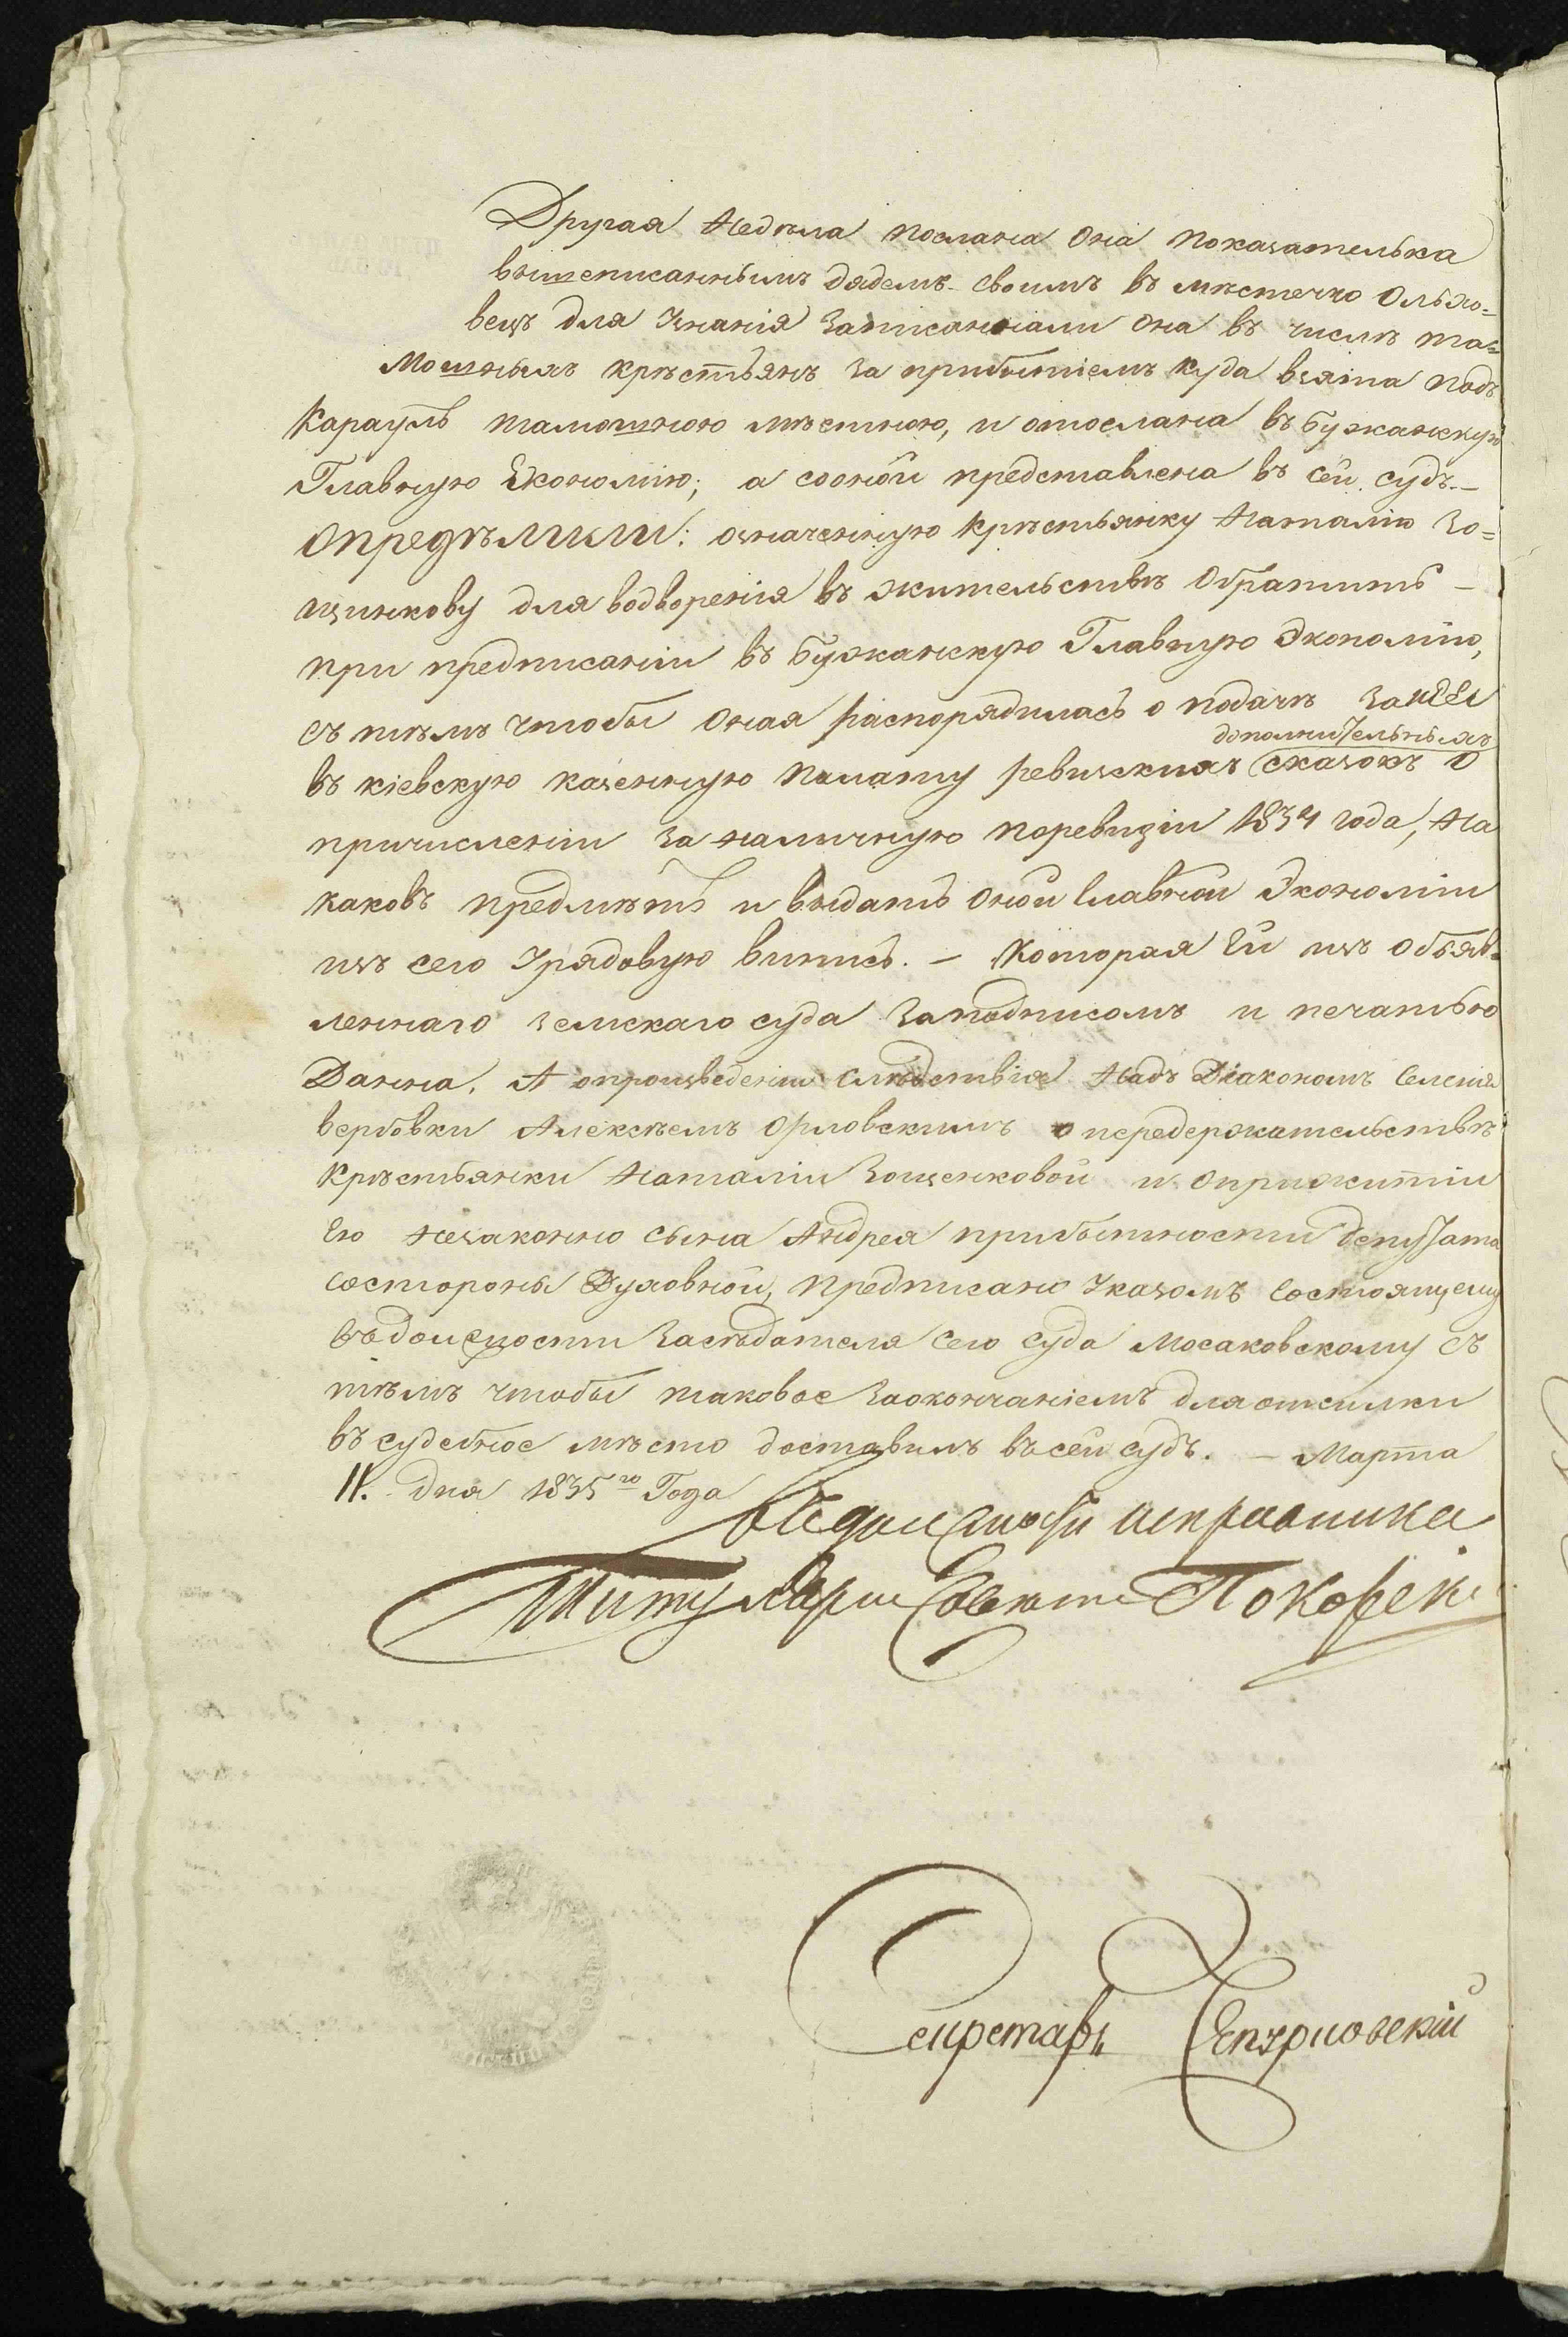 Другая недѣла послана она показателька
вышеписаннымъ дядемъ своимъ въ мѣстечко Ольхо=
вецъ для узнанія записанали она въ числѣ та=
мошныхъ крѣстьянъ за прибытіемъ куда взята подъ
караулъ тамошнюю мѣстною, и отослана въ бужанскую
Главную Економію; а соонои представлена въ сеи судъ. —
Опредѣлили: означенную крѣстьянку Наталію Зо=
щинкову для водворенія въ жительствѣ обратить —
при предписаніи въ бужанскую Главную Экономію,
съ тѣмъ чтобы оная распорядилась о подачѣ занеи
дополнительныхъ
въ кіевскую казенную палату ревизскихъ сказокъ о
причисленіи за наличную поревизіи 1834 года, на
каковъ предмѣтъ и выдать оной главной Экономіи
изъ сего урядовую випись. — Которая Ей изъ объяв=
леннаго земскаго суда заподписомъ и печатью
Данна. А опроизведеніи слѣдствія надъ Діакономъ селенія
вербовки Алексѣемъ Орловскимъ о передержательствѣ
крѣстьянки Наталіи Зощенковой и оприжитіи
Ею незаконно сына Андрея прибытности депутата
состороны Духовной, предписано указомъ состоящему
въдолжности засѣдателя сего суда Мосаковскому съ
тѣмъ чтобы таковое заокончаніемъ для отсилки
въ судебное мѣсто доставилъ въ сеи судъ. — Марта
11. дня 1835го Года
Въ должности исправника
Титуляри Совѣтни Покорск
Секретарь Чепурновскій